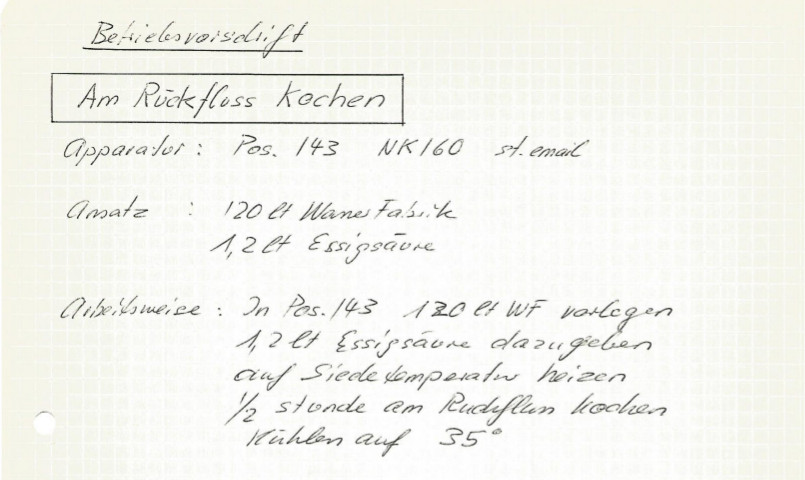 Betriebsvorschrift
Am Rückfluss Kochen
Apparatur: Pos. 143 NK160 st. email
Ansatz : 120 lt Wasser Fabrik
1,2 lt Essigsäure
Arbeitsweise: In Pos. 143 120 lt WF vorlegen
1,2 lt Essigsäure dazugeben
auf Siedetemperatur heizen
1/2 stunde am Rückfluss kochen
Kühlen auf 35°